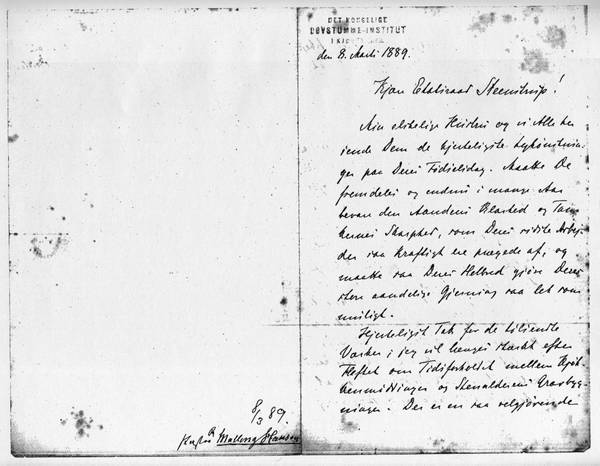 8/3 89.
Malling Hansen
DET KONGELIGE
DØVSTUMME-INSTITUT
I KJØBENHAVN
den 8. Marts 1889.
Kjære Etatsraad Steenstrup!
Min elskelige Hustru og vi Alle
sende Dem de hjerteligste Lykønsknin-
ger paa Deres Fødselsdag. Maatte De
fremdeles og endnu i mange Aar
bevare den Aandens Klarhed og Tan-
kernes Skarphed, som Deres sidste Arbej-
der saa kraftigt ere prægede af, og
maatte saa Deres Helbred gjøre Deres
store aandelige Gjerning saa let som
muligt.
Hjerteligst Tak for de tilsendte
Værker; jeg vil længes stærkt efter
Heftet om Tidsforholdet mellem Kjøk-
kenmøddinger og Stenalderens Gravbyg-
ninger. Der er en saa velgjørende